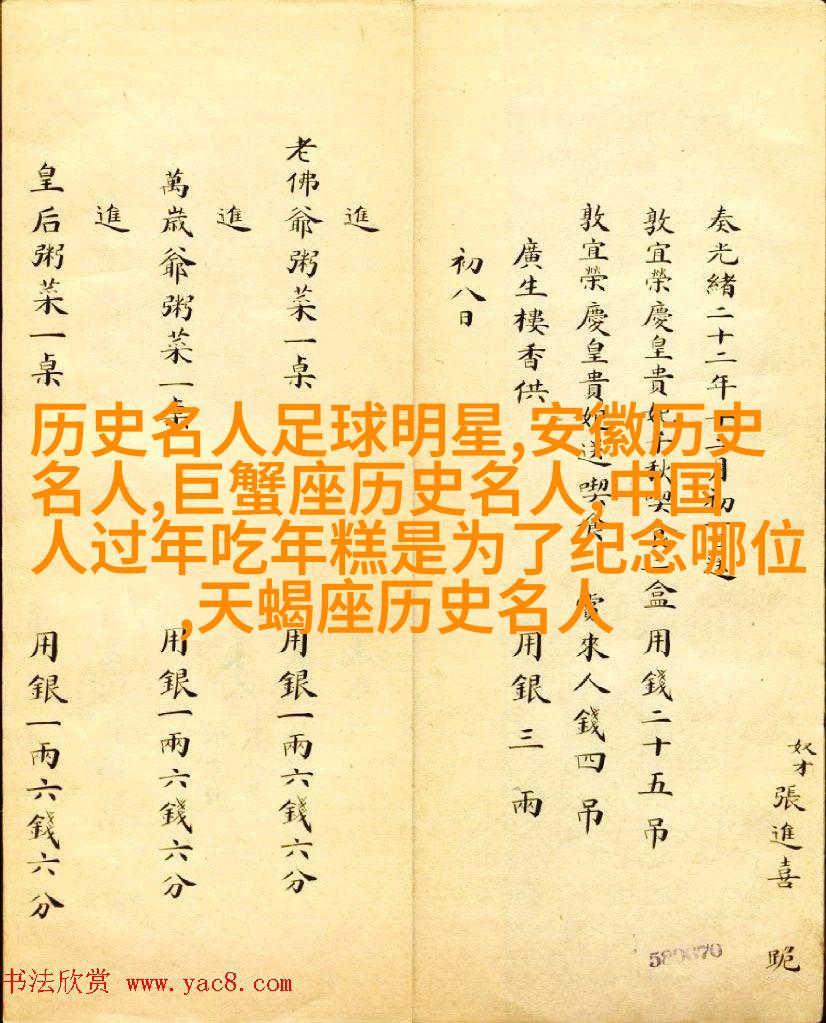 奴才張進喜 跪
奏光緒二十二年十月初
敦宜榮慶皇貴妃千秋喫食盒用錢二十五吊
敦宜榮慶皇貴妃送喫食 賞來人錢四吊
廣生樓香供 用銀三兩
初八日
進
老佛爺粥菜一桌 用銀一兩六錢六分
進
萬歲爺粥菜一桌 用銀一兩六錢六分
進
皇后粥菜一桌 用銀一兩六錢六分
历史名人足球明星,安徽历史
名人,巨蟹座历史名人,中国
人过年吃年糕是为了纪念哪位
,天蝎座历史名人
580670
书法欣赏 www.yac8.com